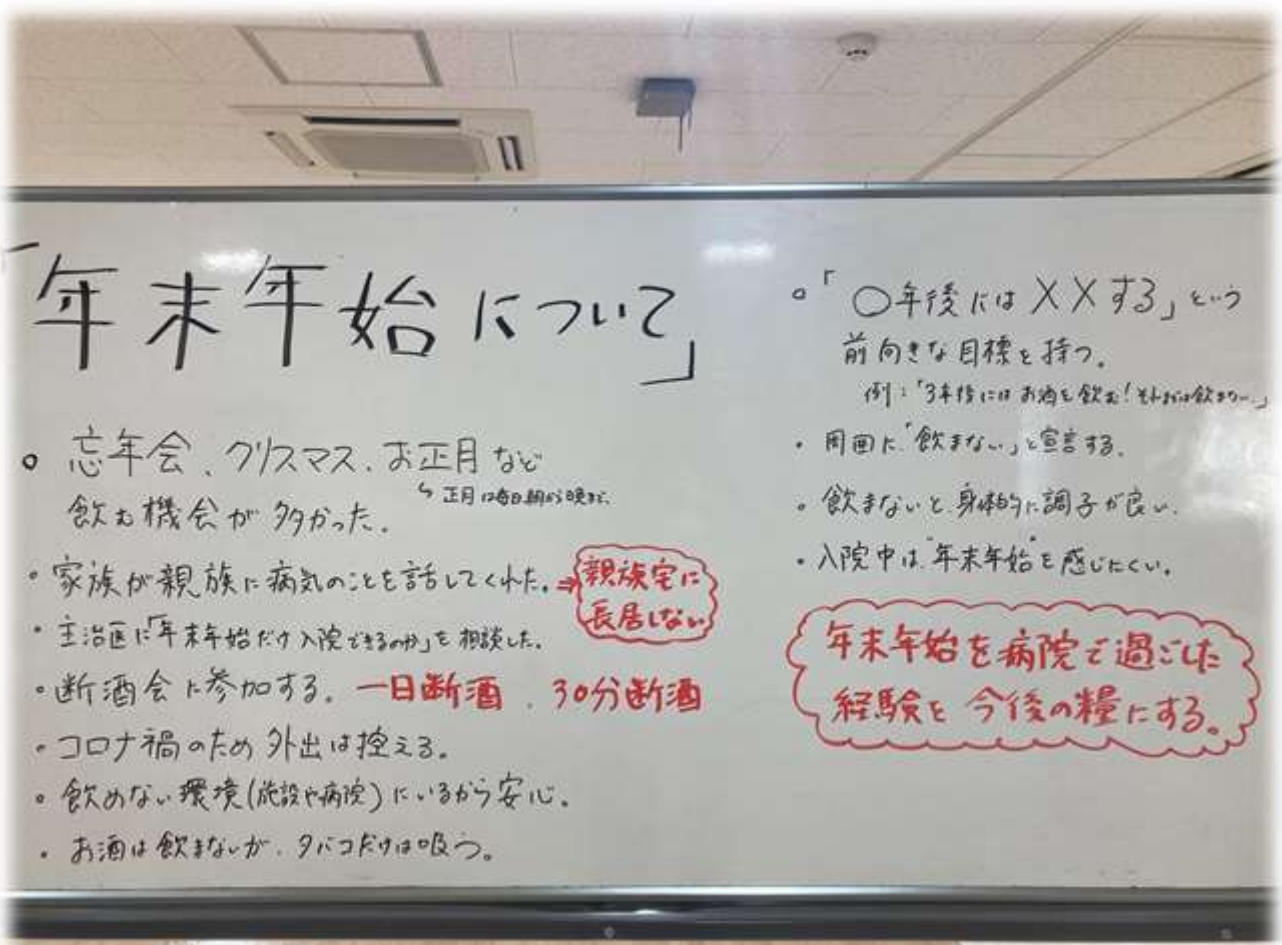 「年末年始について」
。忘年会、クリスマス、お正月など
↳ 正月は毎日朝から晩まで。
飲む機会が多かった。
・家族が親族に病気のことを話してくれた。⇒
親族宅に
長居しない
・主治医に「年末年始だけ入院できるのか」を相談した。
・断酒会に参加する。一日断酒、30分断酒
・コロナ禍のため外出は控える。
。飲めない環境(施設や病院)にいるから安心。
・お酒は飲まないが、タバコだけは吸う。
。「〇年後には××する」という
前向きな目標を持つ。
例:「3年後にはお酒を飲む!それまでは飲まない。」
・周囲に「飲まない」と宣言する。
・飲まないと身体的に調子が良い。
・入院中は"年末年始"を感じにくい。
年末年始を病院で過ごした
経験を今後の糧にする。